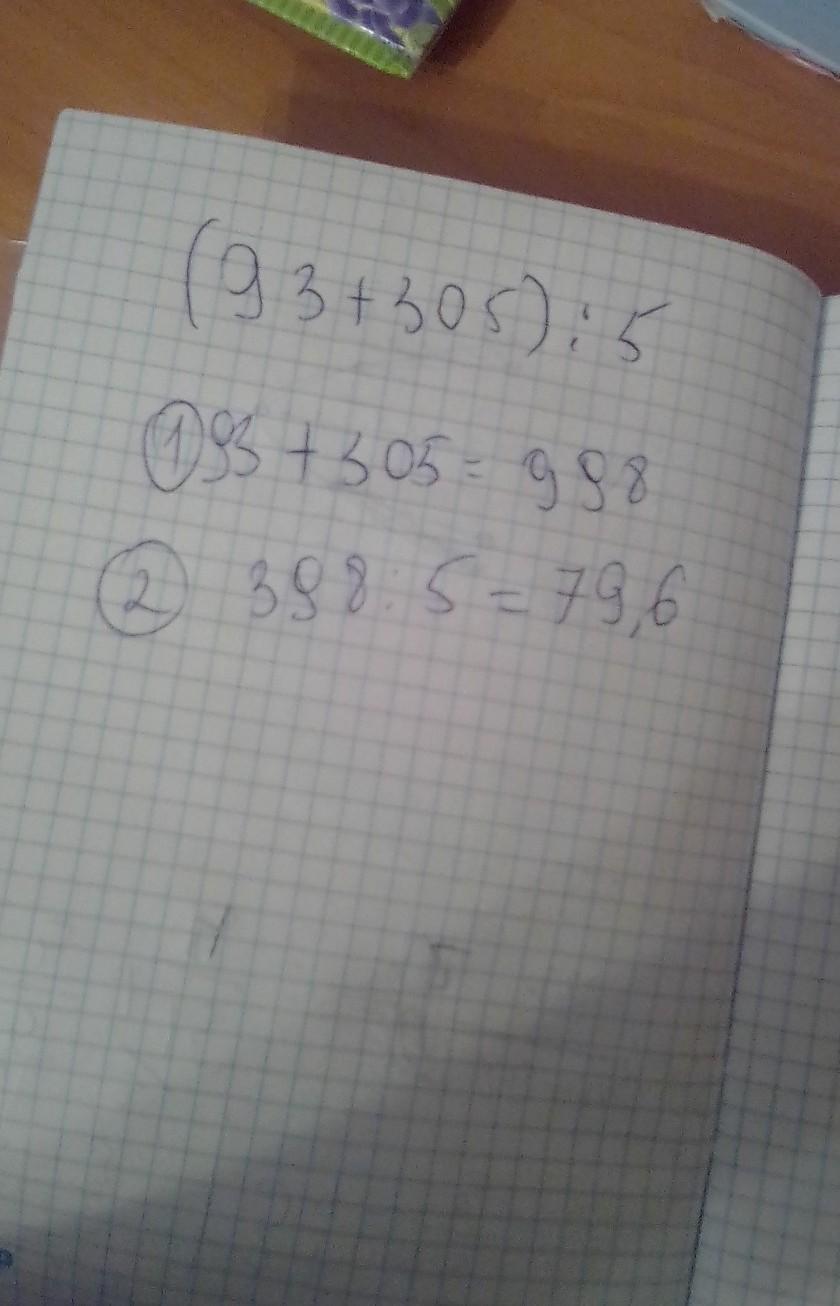 (93+305):5
① 93+305=998
② 398:5=79,6